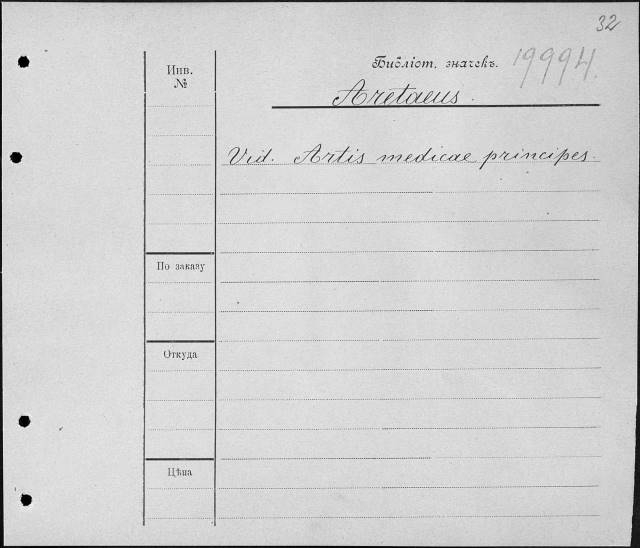 32
Библіот. значекъ. 19994.
Инв.
№
Aretaeus.
Vid. Artis medicae principes.
По заказу
Откуда
Цѣна